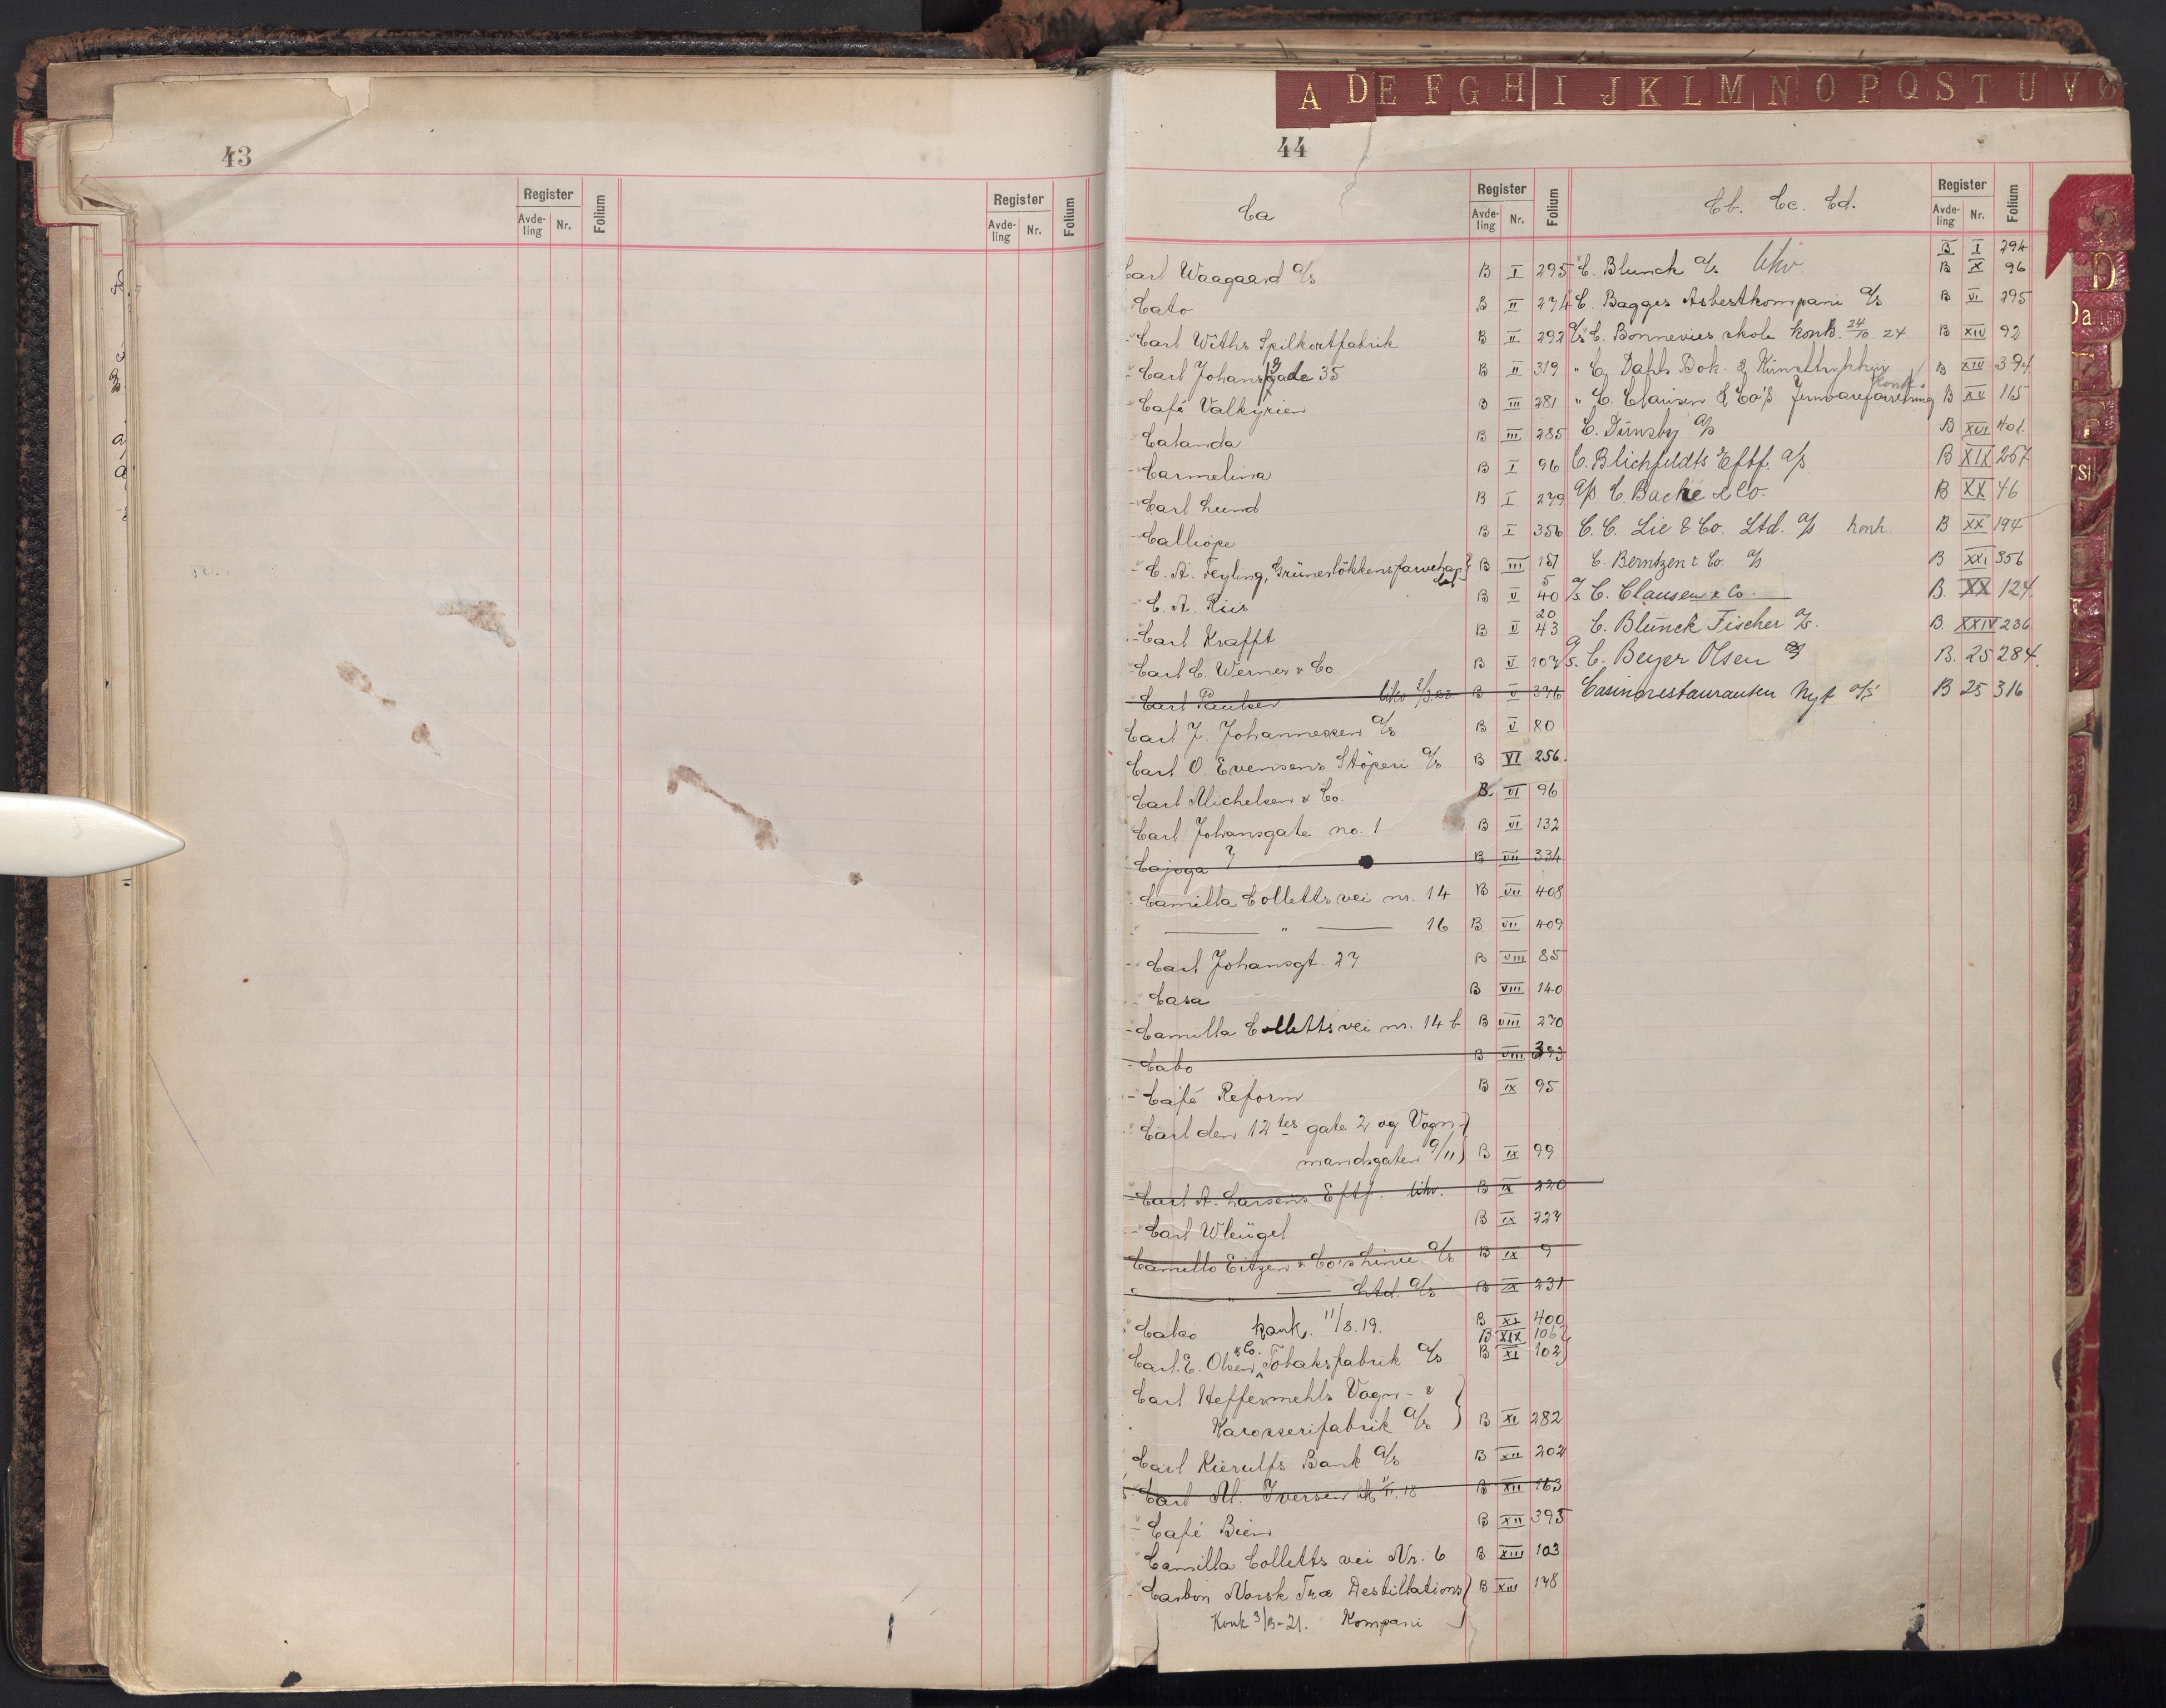 43
Register Folium Register Folium
Avde-ling Nr. Avde-ling Nr.
A D E F G H I J K L M N O P Q S T U V Ø
44
Ca
Register Folium
Avde-ling Nr.
Carl Waagaard A/s B I 295
Cato B II 274
Carl Withs Spilkortfabrik B II 292
Carl Johansgade 35 B II 319
Café Valkyrien B III 281
Calanda B III 285
Carmelina B I 96
Carl Lund B I 279
Calliope B I 356
C. A. Feyling, Grüneløkkens farvehandel B III 151
C. A. Riis B V 5 40
Carl Krafft B V 20 43
Carl C. Werner & Co. B V 107
Carl Paulsen likv B V 376
Carl J. Johannessen A/s B V 80
Carl O. Evensens Støperi A/s B VI 256
Carl Michelsen & Co. B VI 96
Carl Johansgate no. 1 B VI 132
Cajoga B VII 334
Camilla Colletts vei nr. 14 B VII 408
— " — 16 B VII 409
Carl Johansgt. 27 B VIII 85
Casa B VIII 140
Camilla Colletts vei nr. 14 b B VIII 270
Cabo B VIII 393
Café Reform B IX 95
Carl den 12tes gate 2 og Vogn-
mandsgaten 9/11 B IX 99
Carl A. Larsens Eftf. likv. B IX 220
Carl Wleügel B IX 227
Camillo Eitzen & Co's Linie A/s B IX 9
— " — Ltd. A/s B IX 231
Calco konk. 11/8.19. B XI 400
B XIX 106
Carl. E. Olsen & Co. Tobaksfabrik A/s B XI 102
Carl Heffermehls Vogn- &
Karosserifabrik A/s B XI 282
Carl Kierulfs Bank A/s B XII 202
Carl M. Iversen 18 B XII 163
Café Bien B XII 395
Camilla Colletts vei Nr. 6 B XIII 103
Carbon Norsk Træ Destillations B XIII 178
Konk 3/13-21. Kompani
Cb. Cc. Cd.
Register Folium
Avde-ling Nr.
B I 294
C. Blunck A/s likv. B X 96
C. Bagges Asbestkompani A/s B VI 295
A/s C. Bonnevies skole konk. 24/10 24 B XIV 92
" C. Dahls Bok- & Kunsttrykkeri B XIV 394
Konk.
" C. Clausen & Co's Jernvareforretning B XV 165
C. Dünsby A/s B XVI 401
C. Blichfeldts Eftf. A/s B XIX 257
A/s C. Bache & Co. B XX 46
C. C. Lie & Co. Ltd. A/s konk. B XX 194
C. Berntzen & Co. A/s B XXI 356
A/s C. Clausen & Co. B. XX 124
C. Blunck Fischer A/s. B. XXIV 236
A/s. C. Beyer Olsen B. 25 284
Casinorestauranten Nyt A/s B 25 316